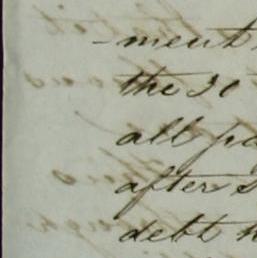 ment
the 30
all pa
after s
debt